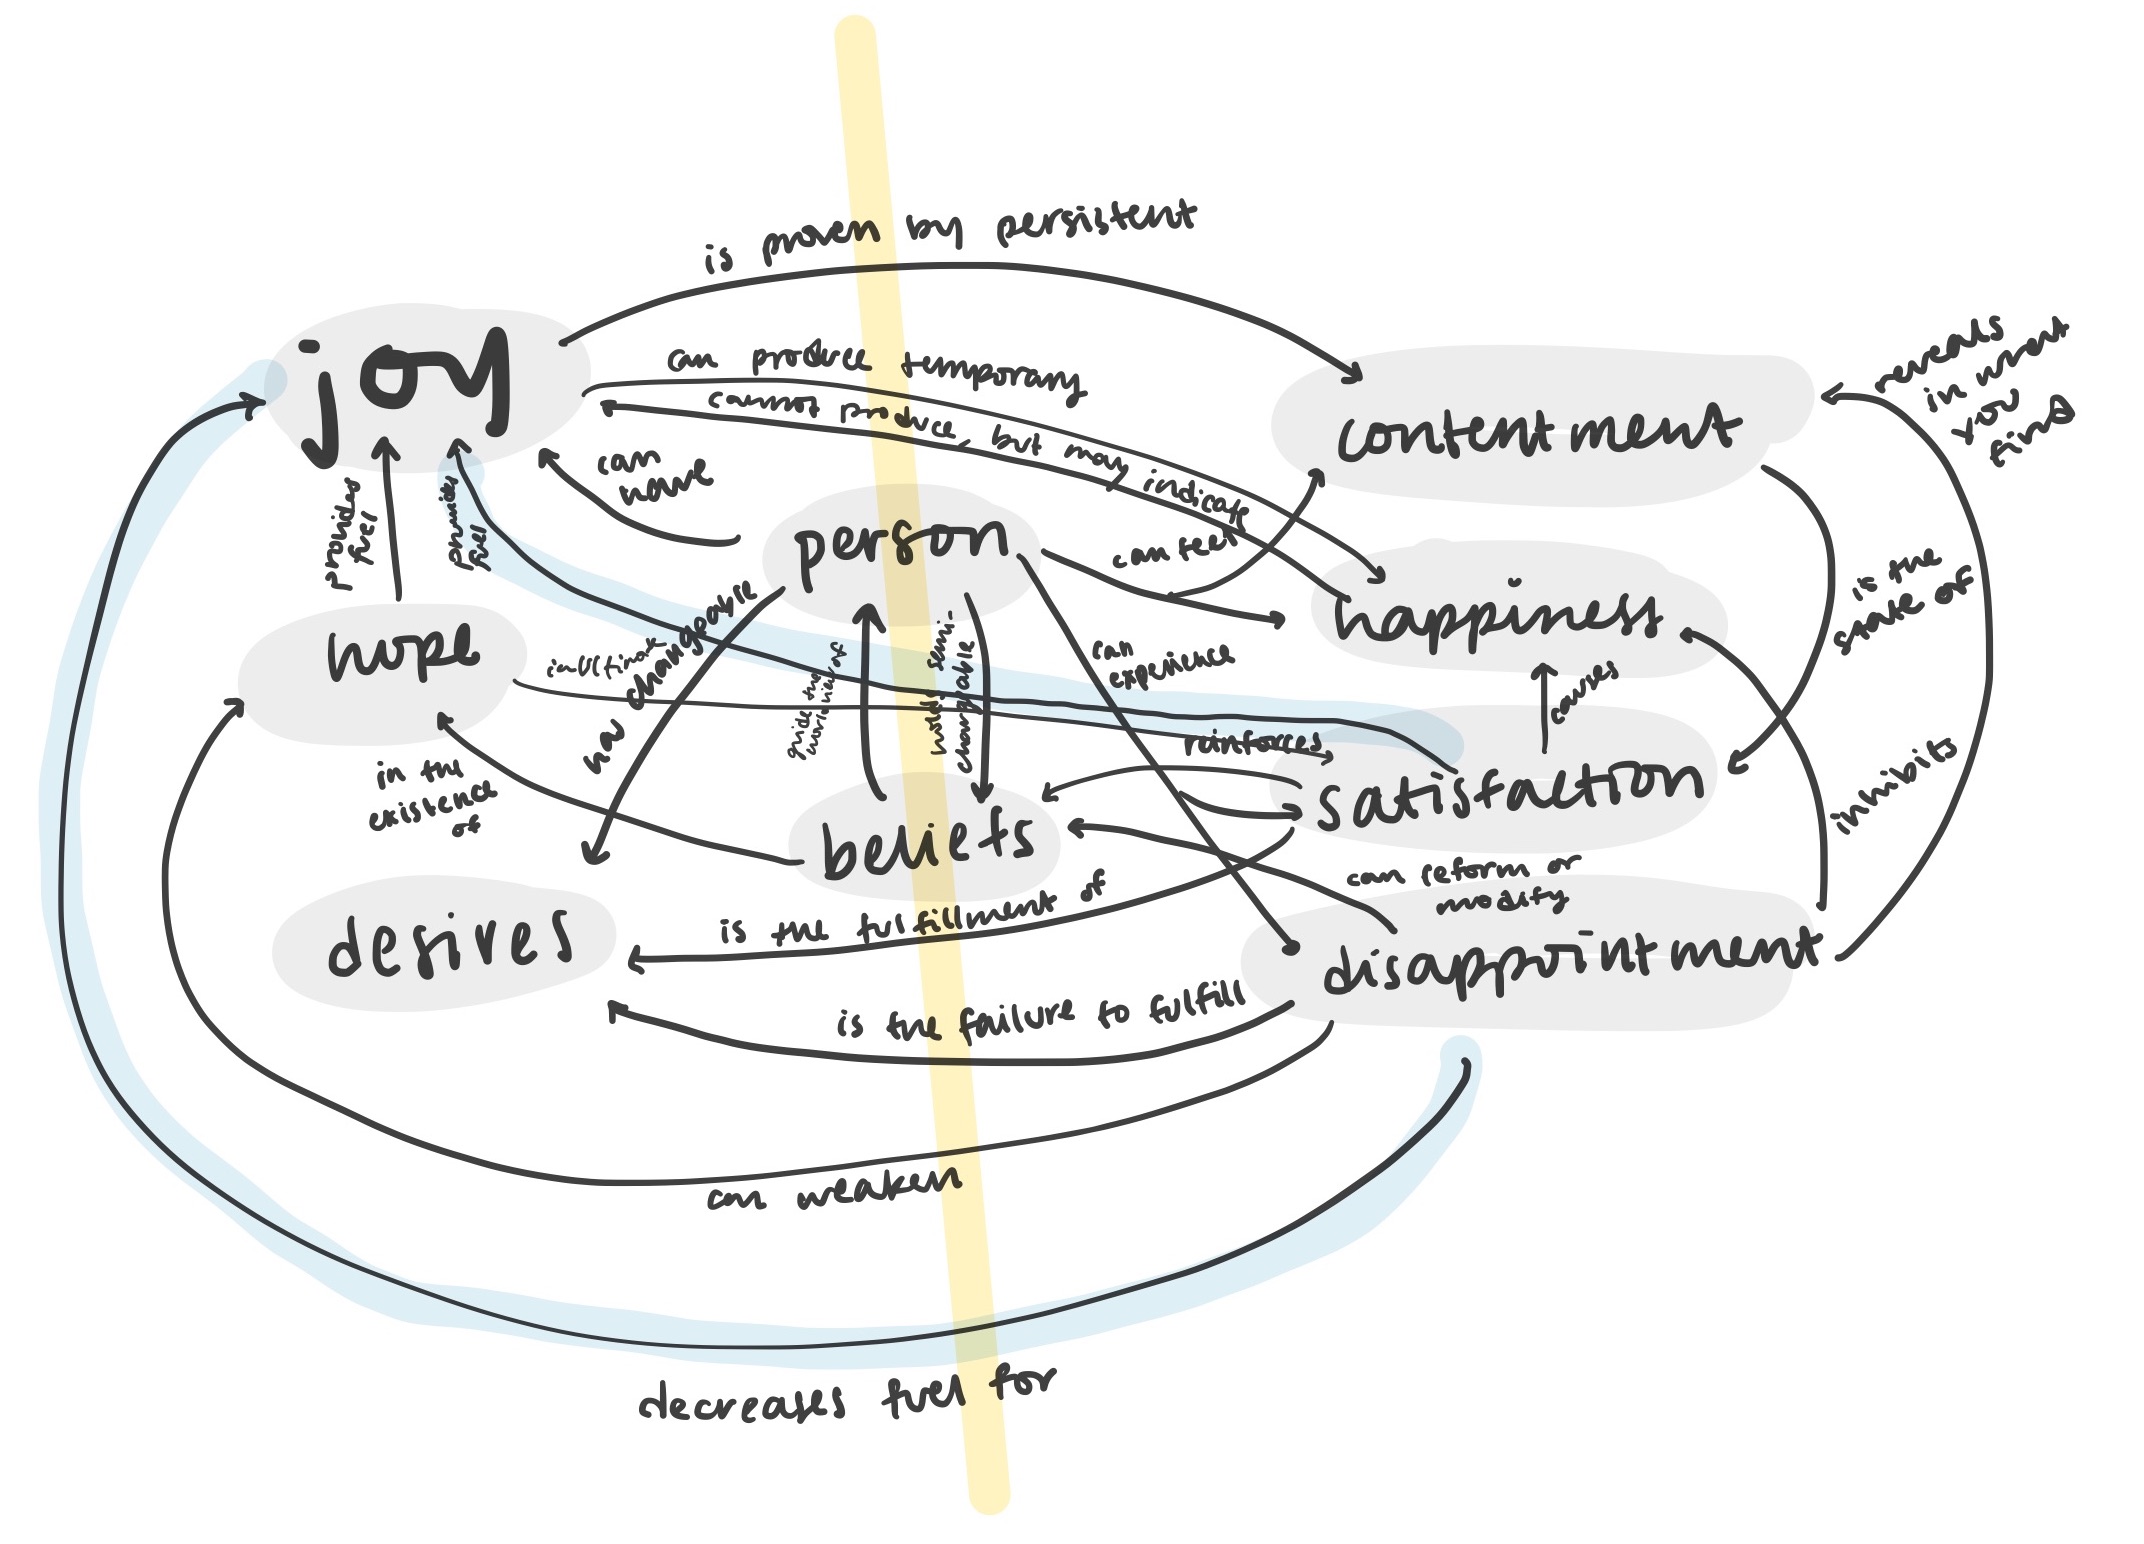 is proven by persistent
joy
can produce temporary
cannot produce, but may indicate
contentment
reveals
in what
you
find
can
have
provides
fuel
provides
fuel
person
can feel
happiness
is the
state of
hope
in ultimate
has changeable
guide the
worldview of
holds semi-
changeable
can
experience
causes
reinforces
in the
existence
of
satisfaction
inhibits
beliefs
can reform or
modify
desires
is the fulfillment of
disappointment
is the failure to fulfill
can weaken
decreases fuel for